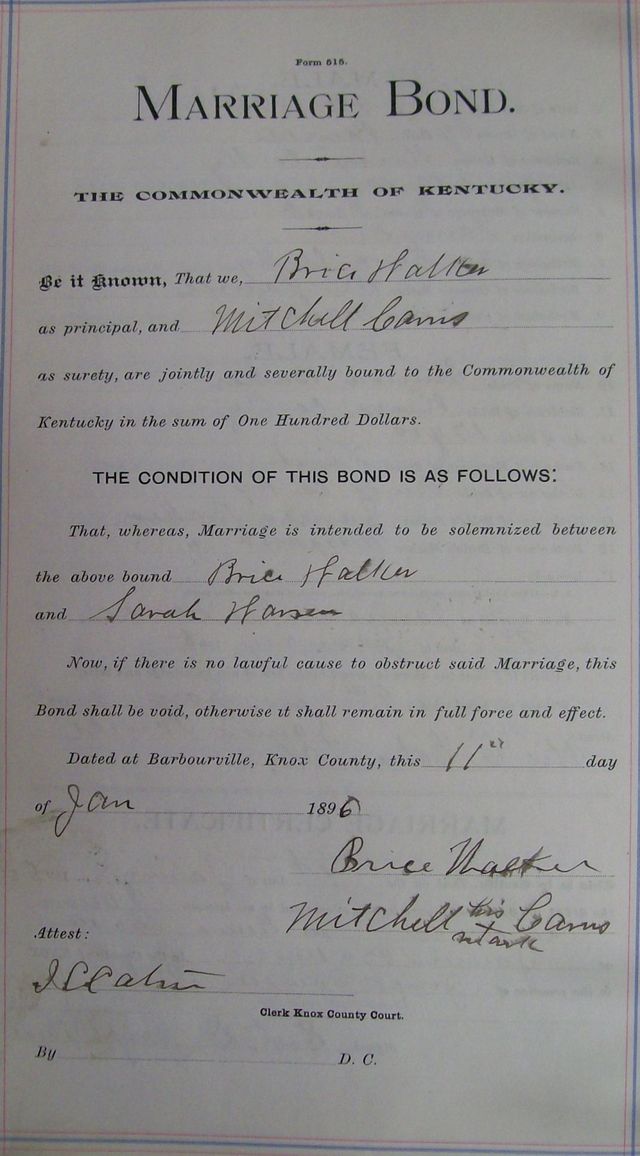 Form 515.
MARRIAGE BOND.
THE COMMONWEALTH OF KENTUCKY.
Be it Known, That we, Brice Walker
as principal, and Mitchell
as surety, are jointly and severally bound to the Commonwealth of
Kentucky in the sum of One Hundred Dollars.
THE CONDITION OF THIS BOND IS AS FOLLOWS:
That, whereas, Marriage is intended to be solemnized between
the above bound Brice Walker
and Sarah
Now, if there is no lawful cause to obstruct said Marriage, this
Bond shall be void, otherwise it shall remain in full force and effect.
Dated at Barbourville, Knox County, this 11" day
of Jan 1896
Brice Walker
Mitchell his mark
Attest:
Clerk Knox County Court.
By D. C.